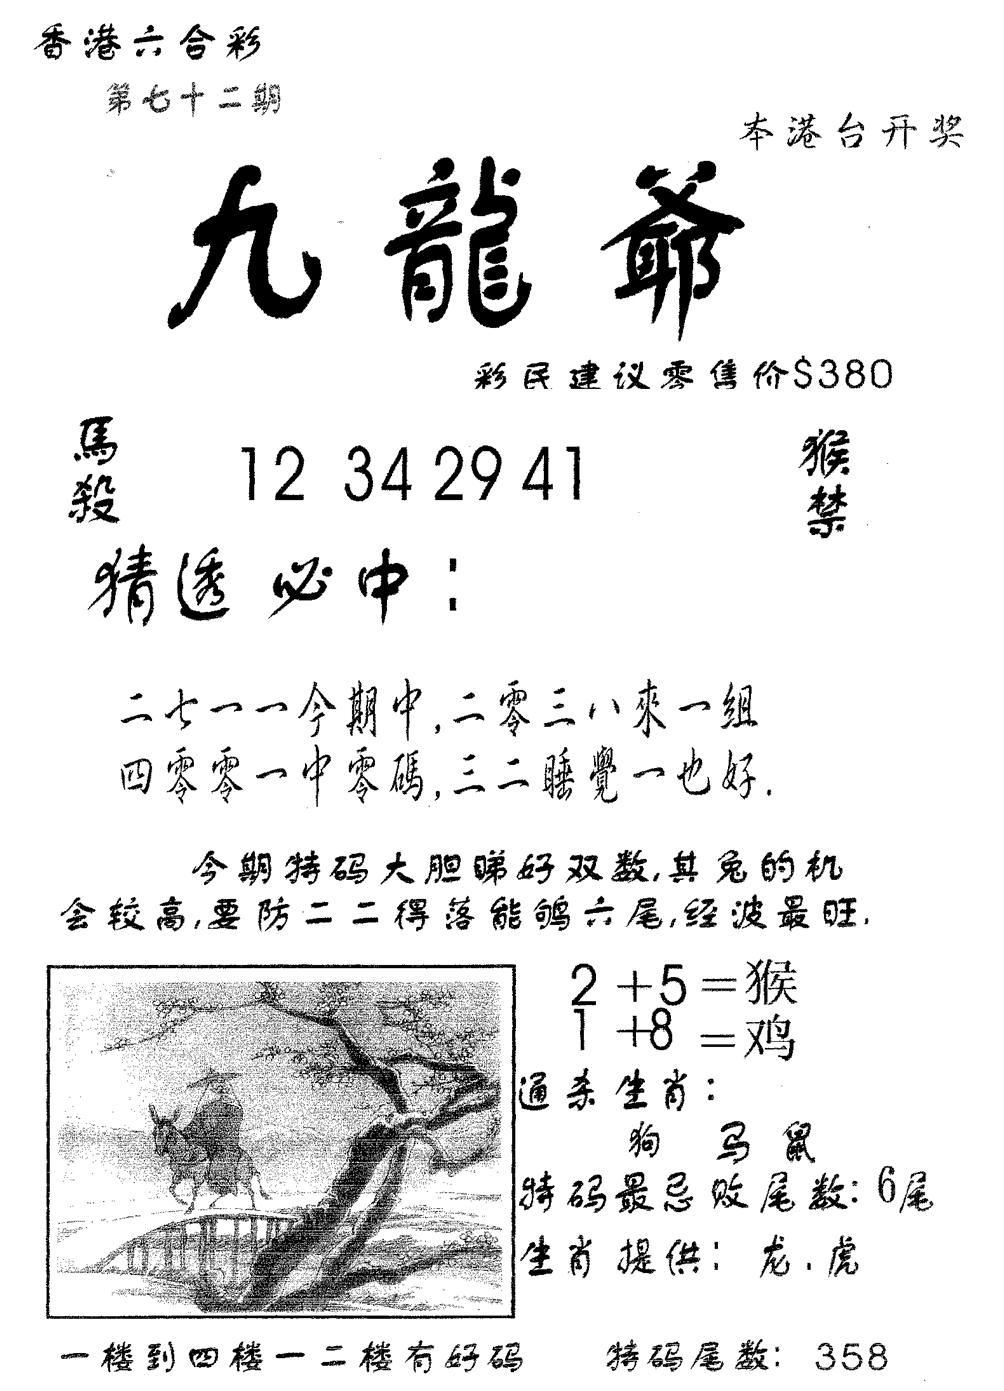 香港六合彩
第七十二期
本港台开奖
九龍爺
彩民建议零售价$380
馬殺
12 34 29 41
猴禁
猜透必中：
二七一一今期中,二零三八來一组
四零零一中零碼,三二睡覺一也好.
今期特码大胆睇好双数,其兔的机
会较高,要防二二得落能鸲六尾,经波最旺.
2+5=猴
1+8=鸡
通杀生肖：
狗 马 鼠
特码最忌败尾数：6尾
生肖提供：龙.虎
一楼到四楼一二楼有好码 特码尾数：358